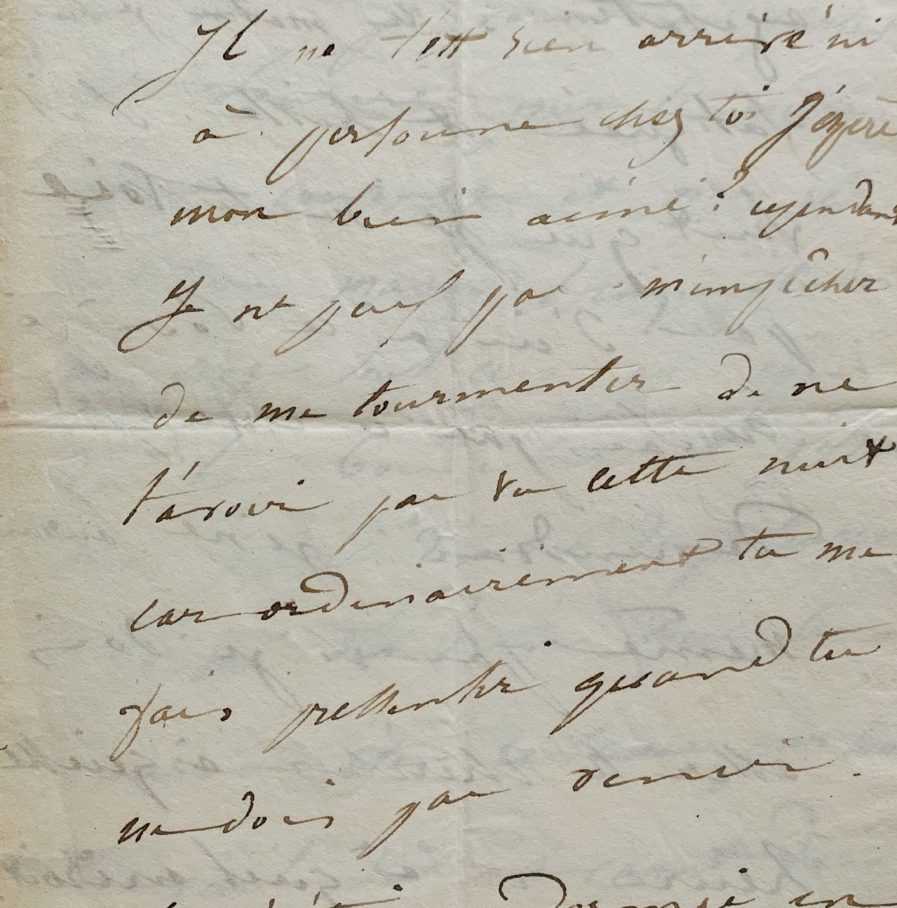 Il ne t'est rien arrivé ni
à personne chez toi J'espère
mon bien aimé? cependant
Je ne puis pas m'empêcher
de me tourmenter de ne
t'avoir pas vu cette nuit
car ordinairement tu me
fais pressentir quand tu
ne dois pas venir.